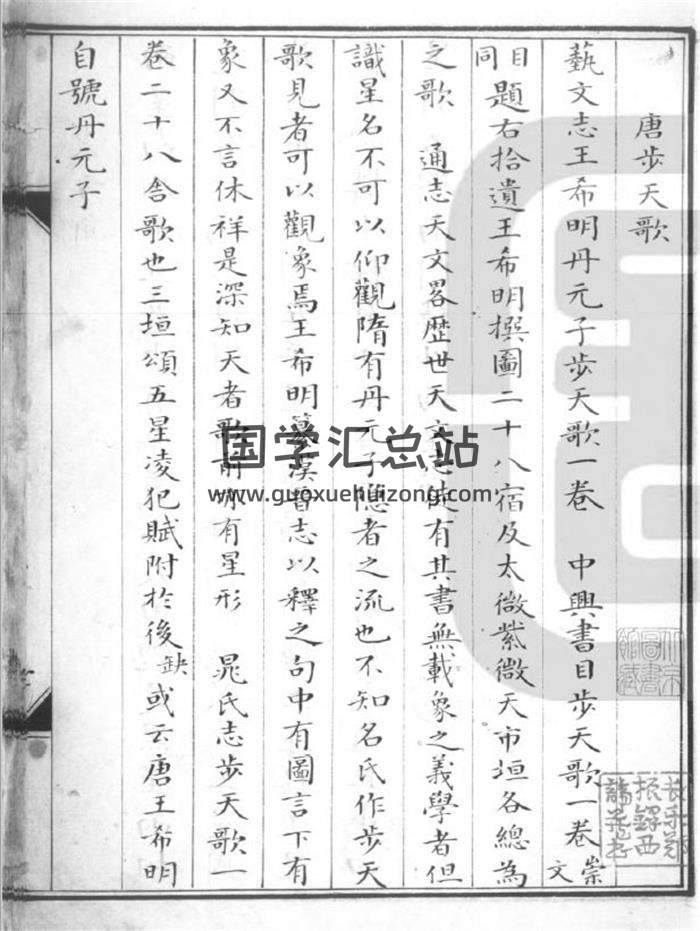 唐步天歌
藝文志王希明丹元子步天歌一卷 中興書目步天歌一卷崇文
目同題右拾遺王希明撰圖二十八宿及太微紫微天市垣各總為
之歌 通志天文畧歷世天文志徒有其書無載象之義學者但
識星名不可以仰觀隋有丹元子隱者之流也不知名氏作步天
歌見者可以觀象焉王希明纂漢晉志以釋之句中有圖言下有
象又不言休祥是深知天者歌前亦有星形 晁氏志步天歌一
卷二十八舍歌也三垣頌五星凌犯賦附於後缺或云唐王希明
自號丹元子
国学汇总站
www.guoxuehuizong.com
長樂鄭
振鐸西
諦藏書
北京
圖書
館藏